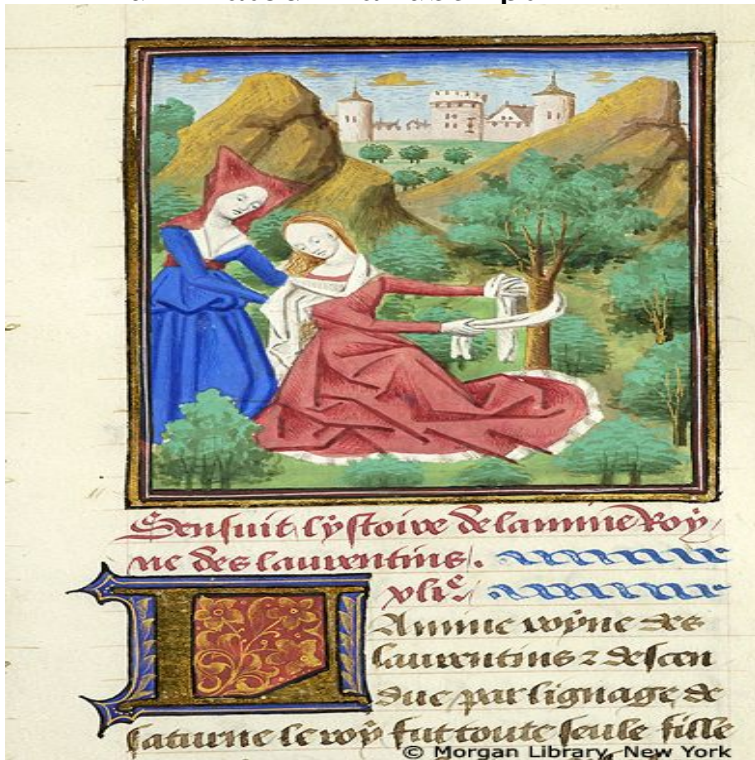 Sensuit lystoire de lauinie Roy
ne des laurentins.
xlie.
LAuinie royne des
laurentins & descen
due par lignage de
saturne le roy fut toute seule fille
© Morgan Library, New York